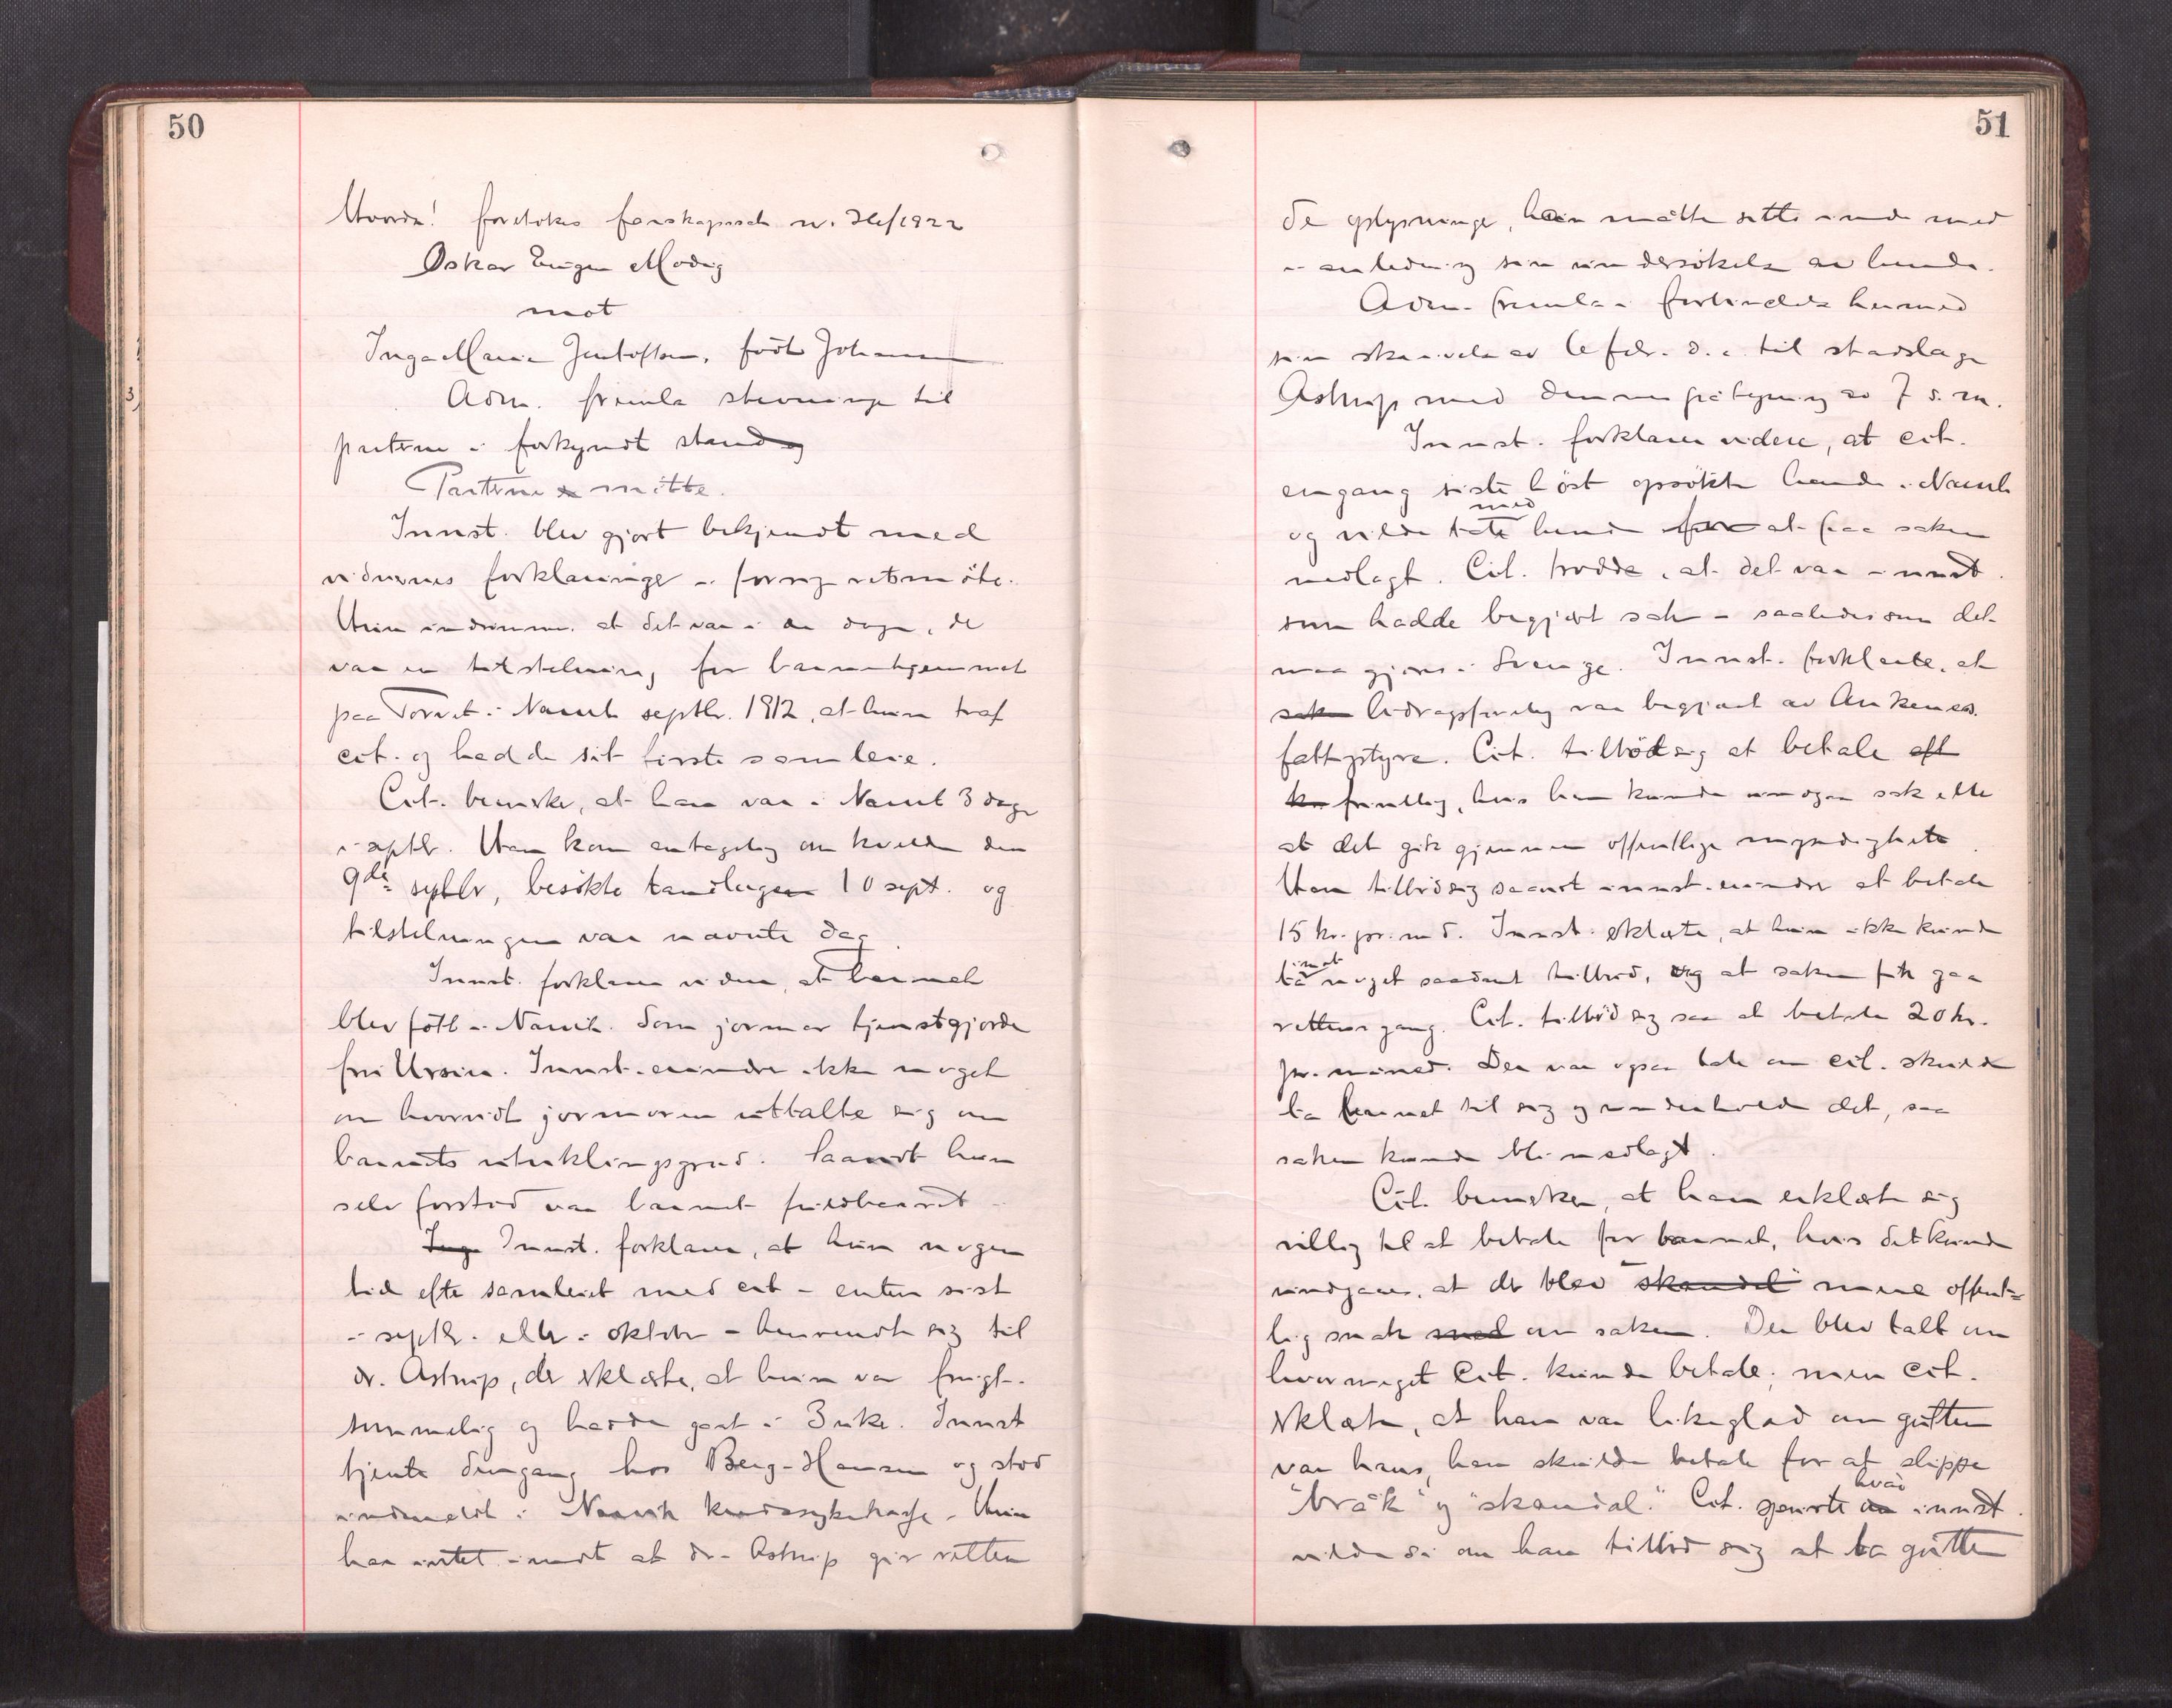 50
Hvorda! foretokes farskapssak nr. 36/1922
Oskar Eugen Modig
mot
Inga Maria Gustafson, født Johansen
Adm. fremla stevninge til
parterne i forkyndt stand
Parterne møtte.
Innst. blev gjort bekjendt med
vidnernes forklaringer i forrige retsmøte.
Hun indrømmer at det var i de dage, de
var en tilstelning for barnehjemmet
paa Torvet i Narvik septbr. 1912, at hun traf
cit. og hadde sit første samleie.
Cit. bemerker, at han var i Narvik 3 dage
i septbr. Han kom antagelig om kvelden den
9de septbr, besøkte tandlægen 10 sept. og
tilstelningen var nævnte dag.
Innst. forklarer videre, at barnet
blev født i Narvik. Som jormor tjenstgjorde
fru Ursin. Innst. erindrer ikke noget
om hvorvidt jormoren uttalte sig om
barnets utviklingsgrad. Saavidt hun
selv forstod var barnet fuldbaaret
Inga Innst. forklarer, at hun nogen
tid efter samleiet med cit – enten sist
i septbr. eller i oktober – henvendte sig til
dr. Astrup, der erklærte, at hun var frugt-
sommelig og hadde gaat i 3 uker. Innst
tjente dengang hos Berg-Hansen og stod
indmeldt i Narvik kredssykekasse. Hun
har intet imot at dr. Astrup gir retten
51
de oplysninger, han måtte sitte inde med
i anledning sin undersøkelse av hende.
Adm. fremla i forbindelse hermed
sin skrivelse av 6 febr. d.å. til stadslæge
Astrup med dennes påtegning av 7 s.m.
Innst. forklarer videre, at cit.
engang siste høst opsøkte hende i Narvik
med
og vilde tale hende for at faa saken
nedlagt. Cit. trodde, at det var innst.
som hadde begjært sak – saaledes som det
maa gjøres i Sverige. Innst. forklarte, at
saken bidragsforelæg var begjært av Ankenes
fattigstyre. Cit. tilbød sig at betale eft
kr frivillig, hvis han kunde undgaa sak eller
at det gik gjennem offentlige myndigheter.
Han tilbød sig saavidt innst. erindrer at betale
15 kr. pr. md. Innst. erklærte, at hun ikke kunde
imot
ta noget saadant tilbud, og at saken fik gaa
rettens gang. Cit. tilbød sig saa at betale 20 kr.
pr. måned. Der var ogsaa tale om cit. skulde
ta barnet til sig og underholde det, saa
saken kunde bli nedlagt.
Cit. bemerker, at han erklærte sig
villig til at betale for barnet, hvis det kunde
undgaaes, at der blev "skandal" mere offent=
lig snak med om saken. Der blev talt om
hvor meget cit. kunde betale; men cit.
erklærte, at han var likeglad om gutten
var hans, han skulde betale for at slippe
hvad
"bråk" og "skandal." Cit. spurte om innst.
vilde si om han tilbød sig at ta gutten